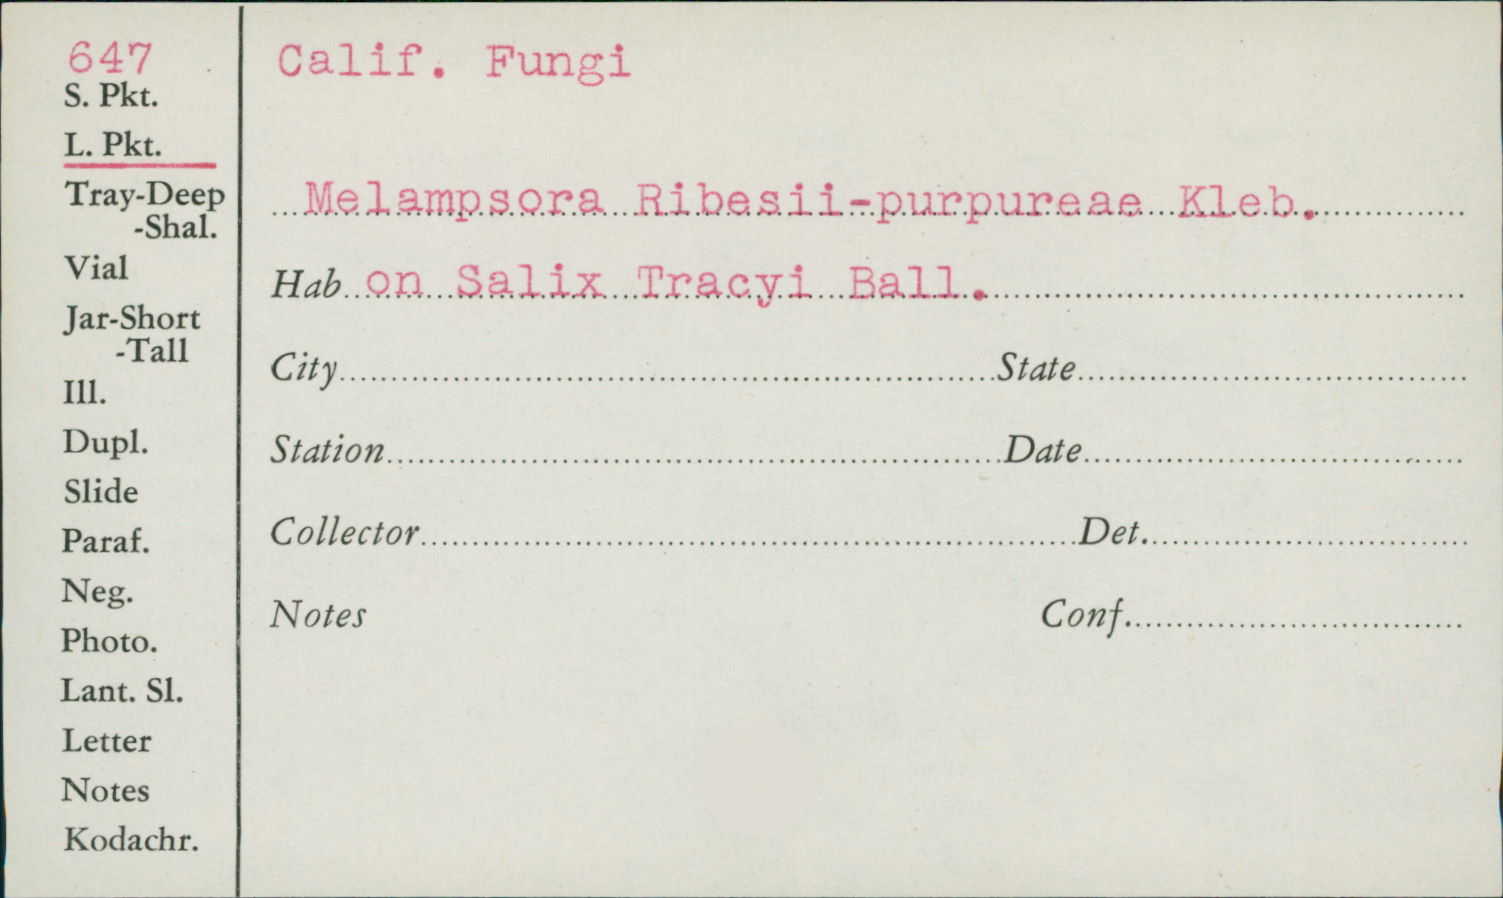 647
S. Pkt.
L. Pkt.
Tray-Deep
-Shal.
Vial
Jar-Short
-Tall
Ill.
Dupl.
Slide
Paraf.
Neg.
Photo.
Lant. Sl.
Letter
Notes
Kodachr.
Calif. Fungi
Melampsora Ribesii-purpureae Kleb.
Hab on Salix Tracyi Ball.
City State
Station Date
Collector Det.
Notes Conf.